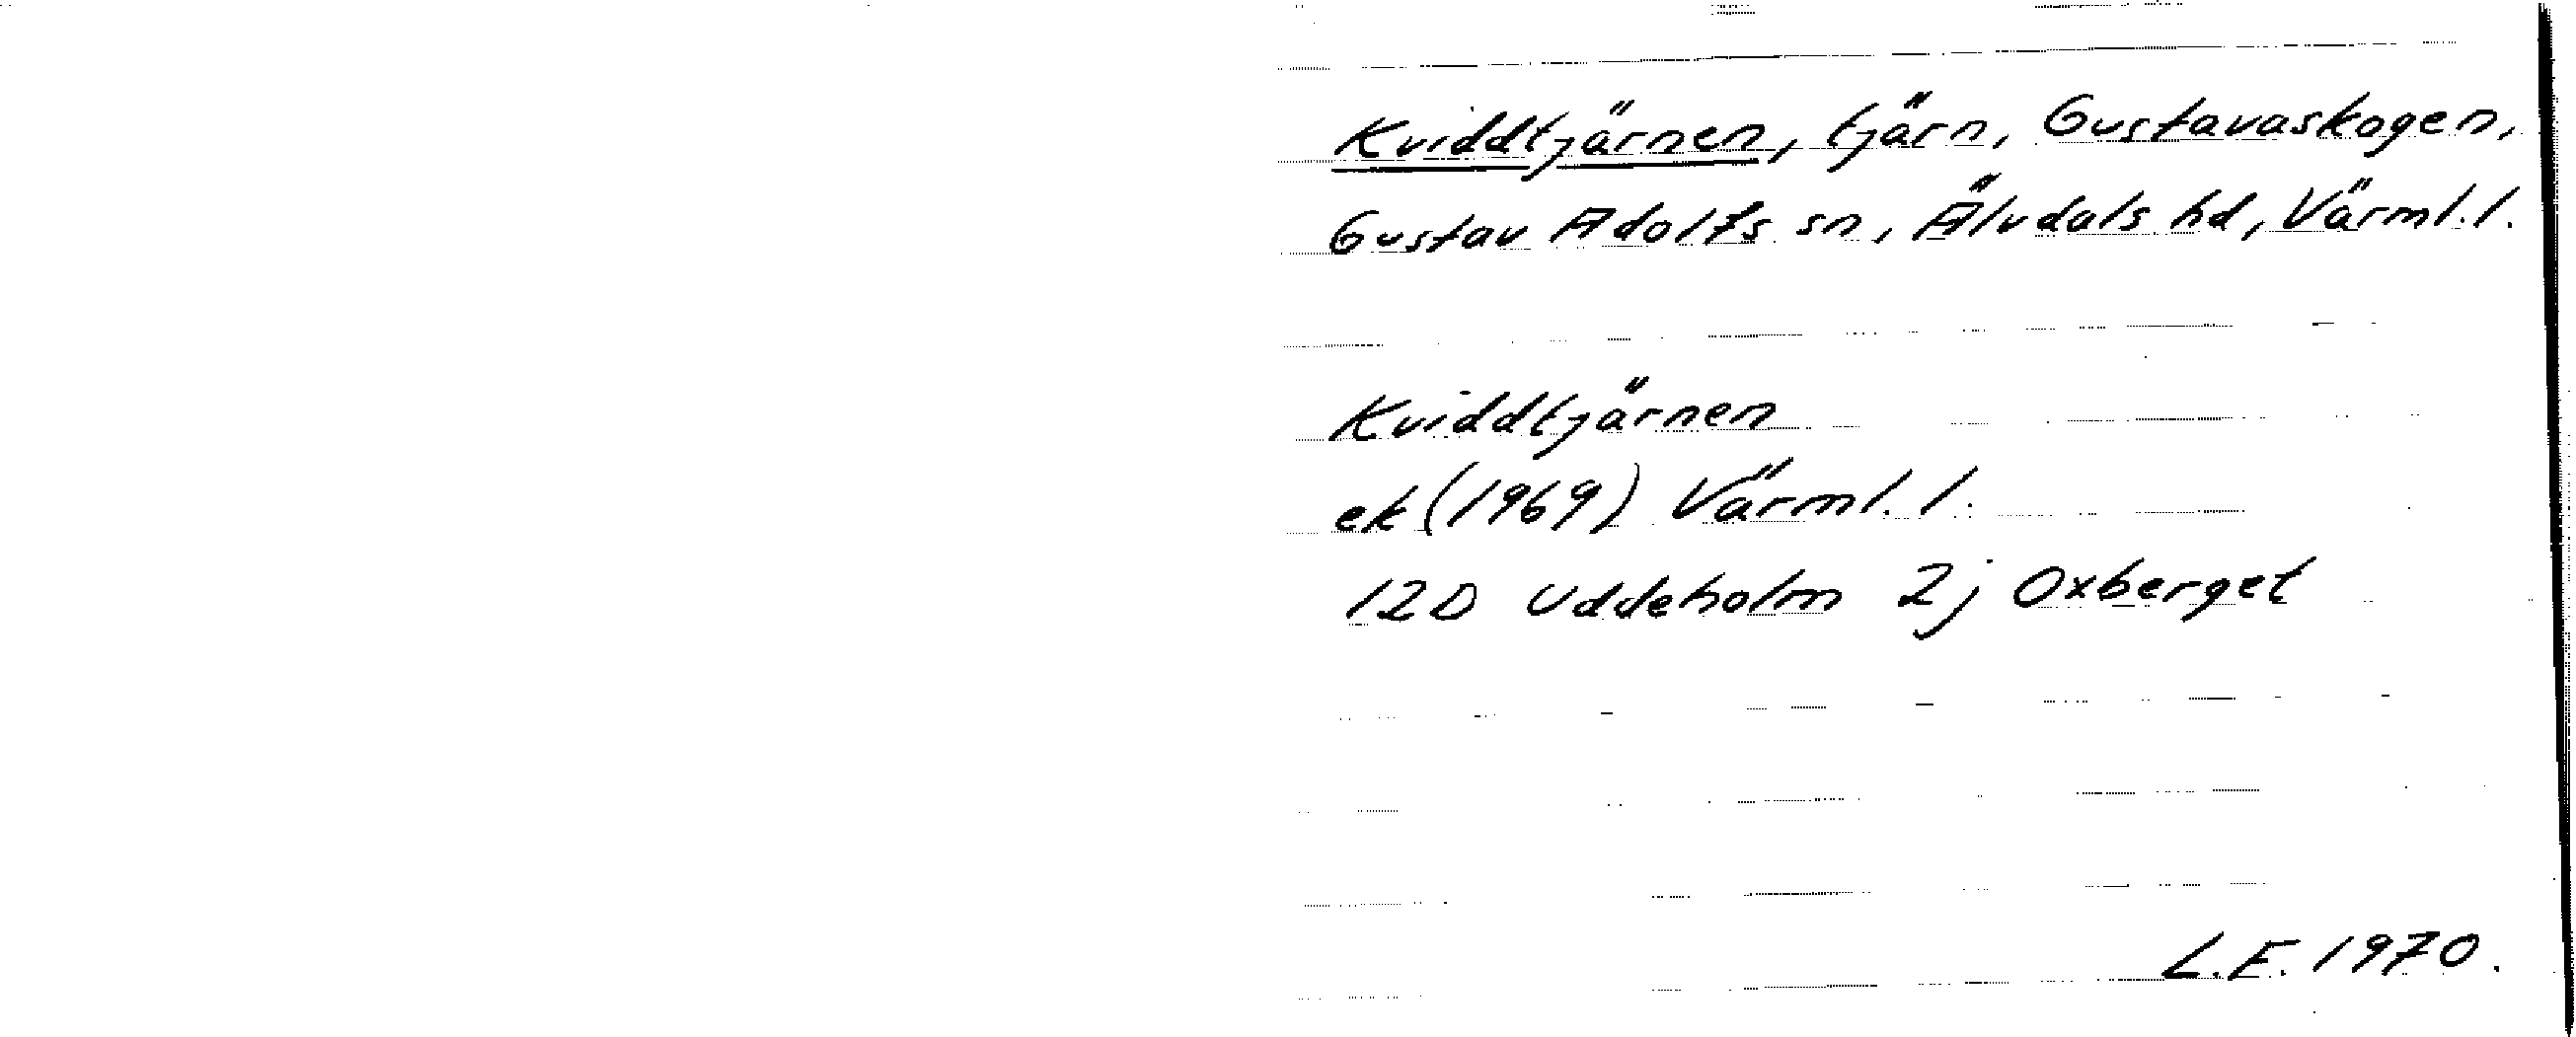 Kviddtjärnen, tjärn, Gustavaskogen,
Gustav Adolfs sn, Älvdals hd, Värml. l.
Kviddtjärnen
ek (1969) Värml. l.
12D Uddeholm 2j Oxberget
L.E. 1970.